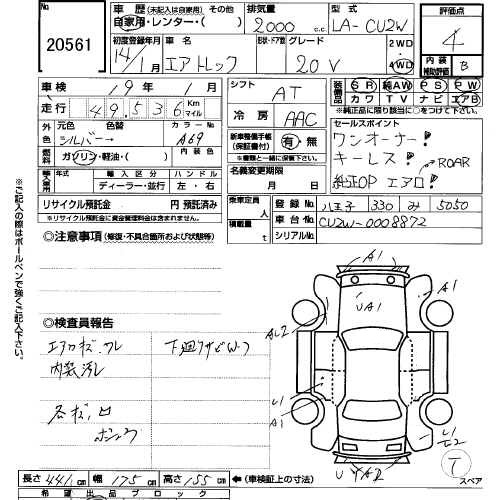 No.
20561
車歴 (未記入は自家用) その他
自家用・レンター・( )
排気量
2000 c.c
型式
LA-CU2W
評価点
4
内装
補助評価
B
初度登録年月
14/1
車名
エアトレック
形状・ドア数
グレード
20V
2WD・
4WD
車検 19年 1月
シフト
AT
装備品
SR 純AW PS PW
カワ TV ナビ エアB
走行 49,536 Km マイル
冷房
AAC
セールスポイント
ワンオーナー!
キーレス!
純正OP エアロ! ROAR
外色
元色
シルバー
色替
カラーNo
A69
新車整備手帳
(保証書付)
有・無
燃料
ガソリン・軽油・( )
内装色
名義変更期限
月 日
輸入車用
年式
輸入区分
ディーラー・並行
ハンドル
左・右
リサイクル預託金 円 預託済み
乗車定員 人
積載量 t
登録No
八王子 330 み 5050
車台No
CU2W-0008872
シリアルNo
◎注意事項 (修復・不具合箇所および状態等)
◎検査員報告
内装汚レ
A1
UA1
AL2
A1
A1
U1
7
スペア
長さ 441 cm 幅 175 cm 高さ 155 cm (車検証上の寸法)
希望出品ブロック
※ご記入の際はボールペンで強くご記入下さい。